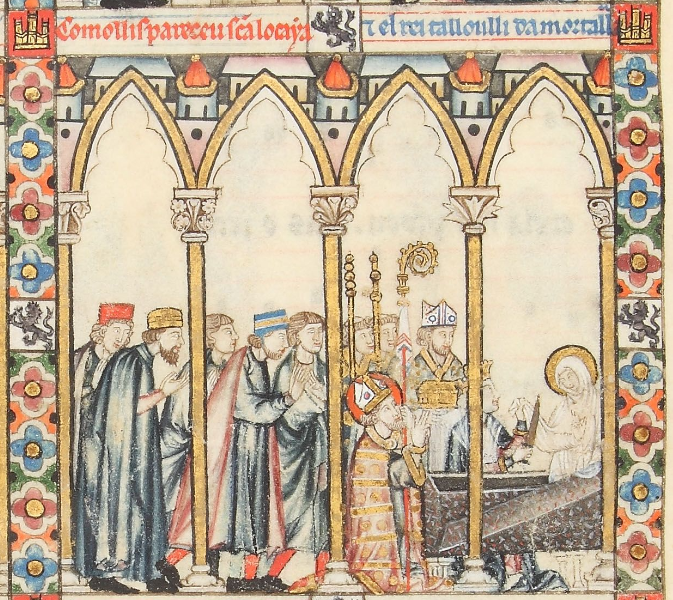 Como llis pareceu scã locaya ⁊ el rei tallou lli da mortall